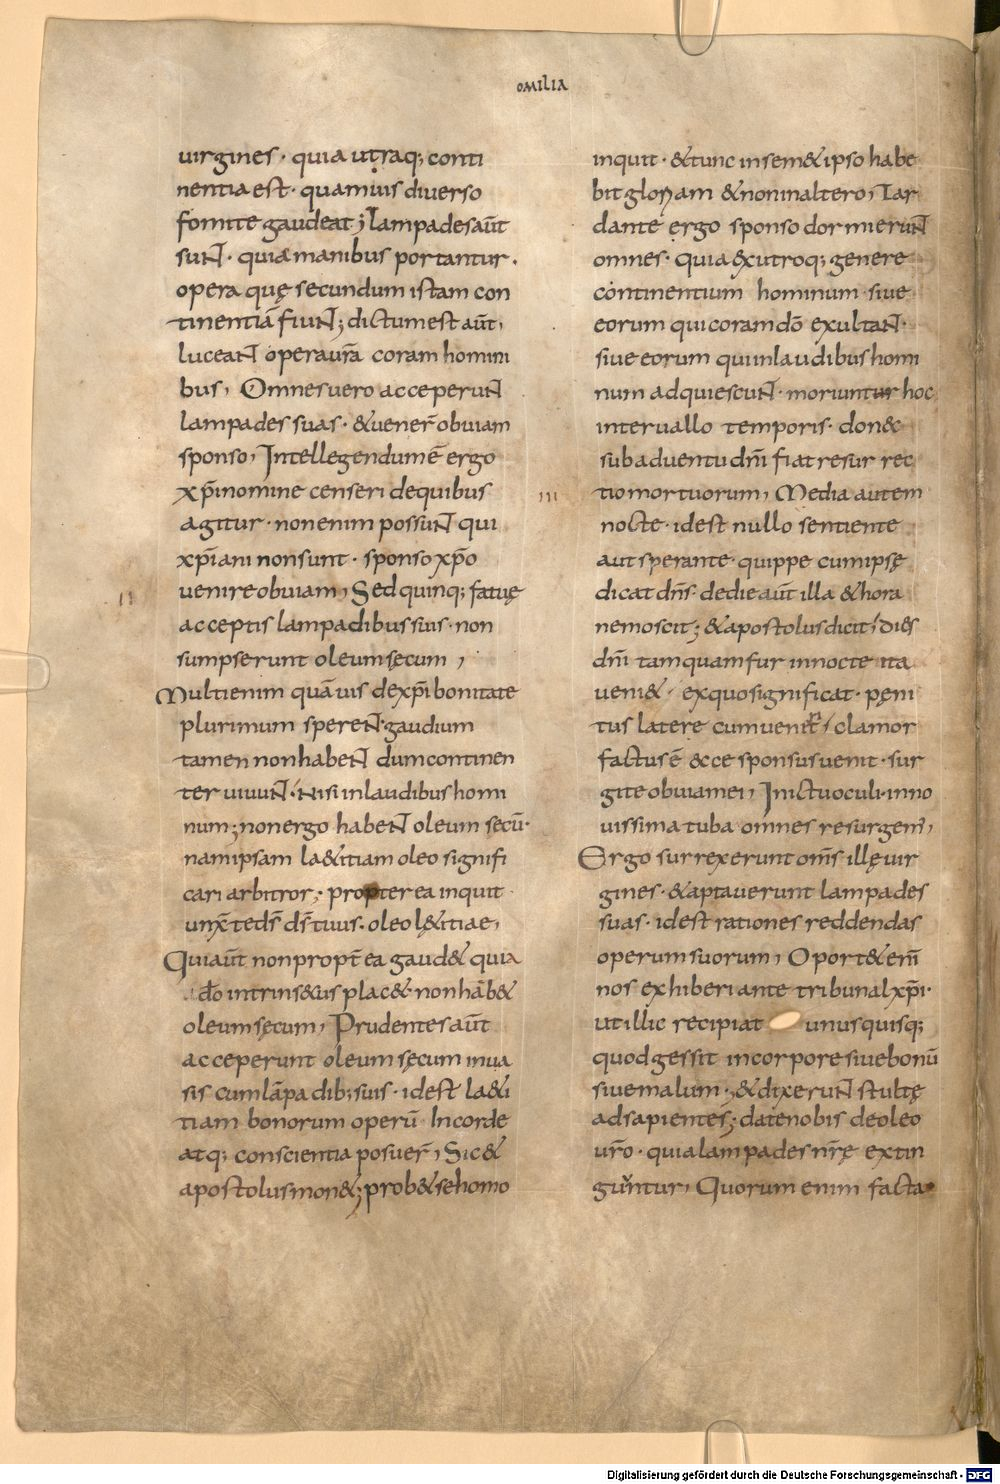 omilia
uirgines · quia utraq; conti
nentia est · quamuis diuerso
fomite gaudeat; Lampades aut̄
sunt · quia manibus portantur .
opera quę secundum istam con
tinentiā fiunt; dictum est aut̄,
luceant opera ur̄a coram homini
bus, Omnes uero acceperunt
lampades suas · & uener̄ obuiam
sponso, Intellegendum ē ergo
xp̄i nomine censeri de quibus
agitur · non enim possunt qui
xp̄iani non sunt · sponso xp̄o
uenire obuiam, Sed quinq; fatuę
II
acceptis lampadibus suis · non
sumpserunt oleum sęcum ,
Multi enim quāuis de xp̄i bonitate
plurimum sperent · gaudium
tamen non habent dum continen
ter uiuunt · nisi in laudibus homi
num; non ergo habent oleum secū ·
nam ipsam la&itiam oleo signifi
cari arbitror; propterea inquit
unx̄ te ds̄ ds̄ tuus · oleo l&itiae,
Qui aut̄ non propt̄ea gaud& quia
dō intrinsecus plac& · non hāb&
oleum sęcum, Prudentes aut̄
acceperunt oleum sęcum in ua
sis cum lāpadib; suis · id est la&i
tiam bonorum operū · In corde
atq; conscientia posuer̄, Sic &
apostolus mon&; prob& se homo
inquit · & tunc in sem& ipso habe
bit gloriam & non in altero, Tar
dante ergo sponso dormierunt
omnes · quia ex utroq; genere
continentium hominum · siue
eorum qui coram dō exultant ·
siue eorum qui in laudibus homi
num adquiescunt · moriuntur hoc
interuallo temporis · donec
sub aduentu dn̄i fiat resurrec
tio mortuorum, Media autem
III
nocte · id est nullo sentiente
aut sperante · quippe cum ipsę
dicat dn̄s · de die aut̄ illa & hora
nemo scit; & apostolus dicit, dies
dn̄i tamquam fur in nocte ita
ueni& · ex quo significat · pęni
tus latere cum uenit, clamor
factus ē ecce sponsus uenit · sur
gite obuiam ei, In ictu oculi · in no
uissima tuba omnes resurgem̄,
Ergo surrexerunt oms̄ illę uir
gines · & aptauerunt lampades
suas · id est rationes reddendas
operum suorum, Oport& eni̅
nos exhiberi ante tribunal xp̄i ·
ut illic recipiat unusquisq;
quod gessit in corpore siue bonū
siue malum; & dixerunt stultę
ad sapientes; date nobis de oleo
ur̄o · quia lampades nr̄ę extin
guntur, Quorum enim facta
Digitalisierung gefördert durch die Deutsche Forschungsgemeinschaft - DFG